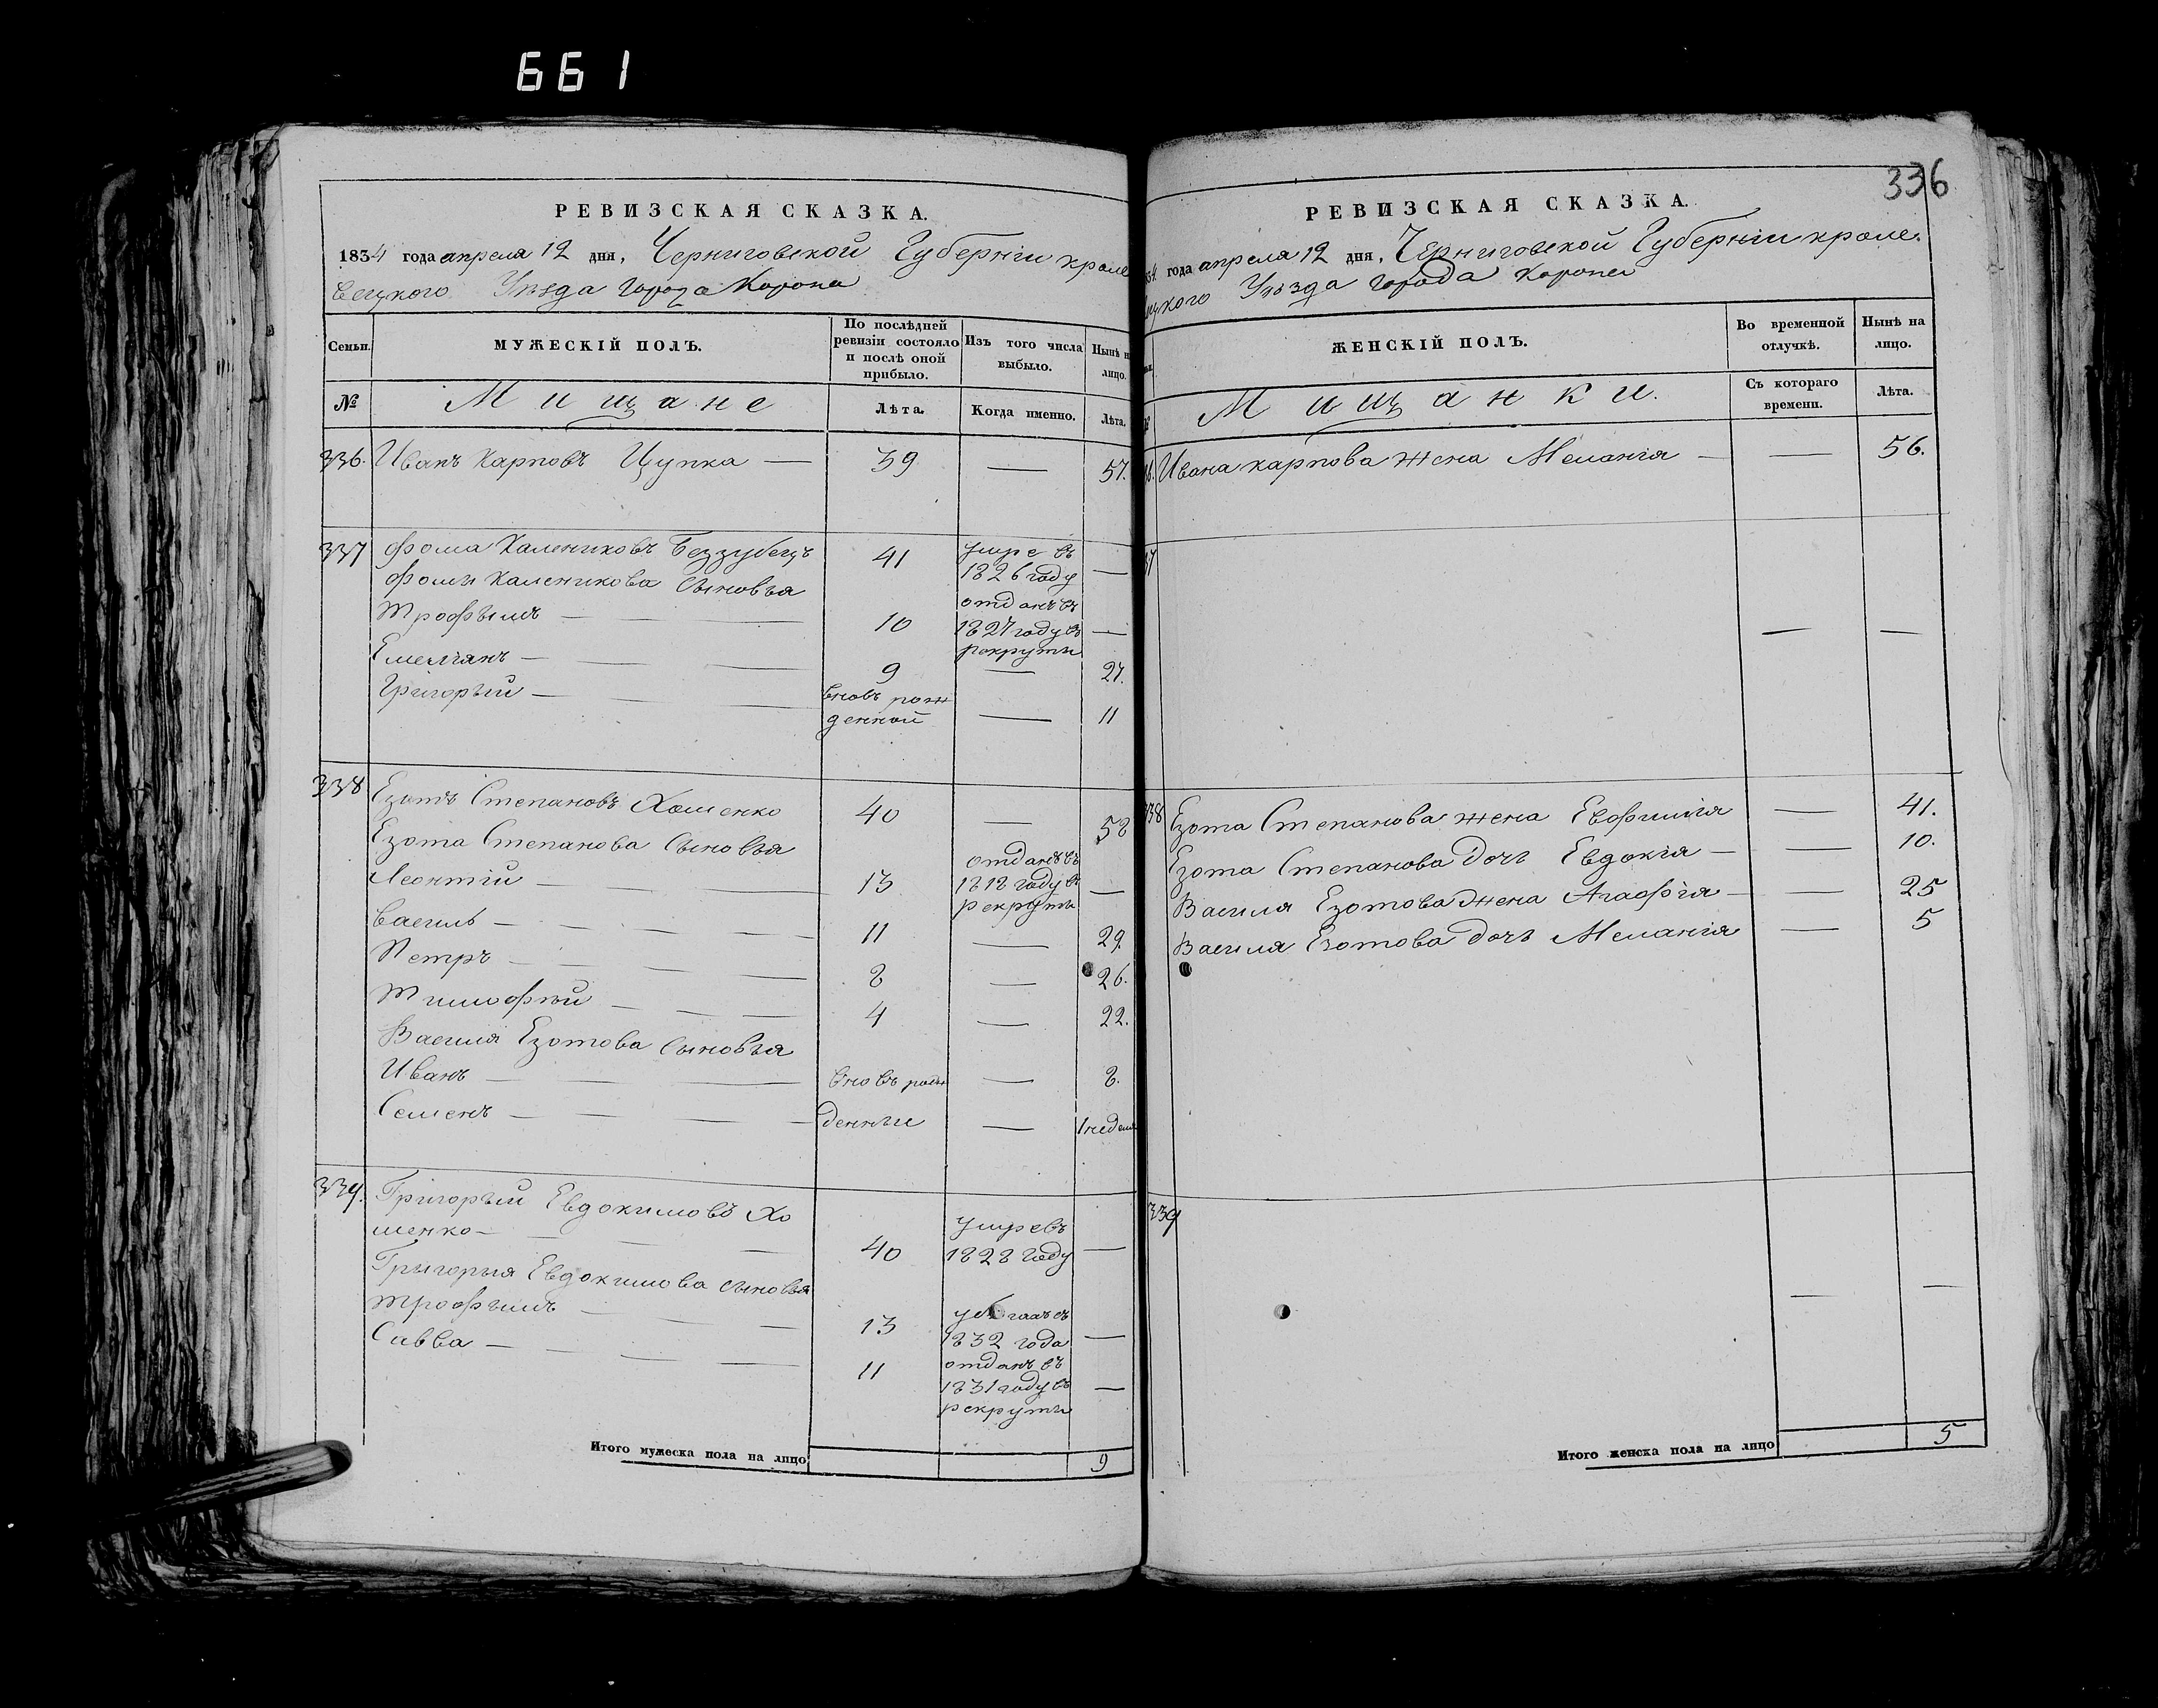 661
РЕВИЗСКАЯ СКАЗКА.
1834 года апреля 12 дня, Черниговской Губернiи кроле
вецкого Уезда города Коропа
Семьи. МУЖЕСКІЙ ПОЛЪ. По послѣдней ревизіи состояло и послѣ оной прибыло. Изъ того числа выбыло. Нынѣ н лицо.
№ Мищане Лѣта. Когда именно. Лѣта.
336. Иванъ Карповъ Цупка — 39 — 57.
337 Фома Калениковъ Беззубецъ 41 умре въ 1826 году —
Фомы Каленикова сыновья
Трофымъ — 10 отданъ въ 1827 году въ рекруты —
Емелiанъ — 9 — 27.
Григорый — вновь рож денной — 11
338 Езотъ Степановъ Хоменко 40 — 58
Езота Степанова сыновья
Леонтiй — 13 отданъ въ 1818 году въ рекруты —
Василь — 11 — 29.
Петръ — 8 — 26.
Тимофѣй — 4 — 22.
Василя Езотова сыновья
Иванъ — вновь рож — 8.
Семенъ — денныи — 1 недели
339. Григорый Евдокимовъ Хо
менко — 40 умре въ 1828 году —
Григорыя Евдокимова сыновья
Трофымъ — 13 1832 года —
Савва — 11 отданъ въ 1831 году въ рекруты —
Итого мужеска пола на лицо 9
336
РЕВИЗСКАЯ СКАЗКА.
34 года апреля 12 дня, Черниговской Губернiи кроле.
цкого Уезда города Коропа
ЖЕНСКІЙ ПОЛЪ. Во временной отлучкѣ. Нынѣ на лицо.
Мищанки. Съ котораго времени. Лѣта.
36. Ивана Карпова жена Меланiя — — 56.
37 — —
338 Езота Степанова жена Евфимiя — 41.
Езота Степанова дочь Евдокiя — — 10.
Василя Езотова жена Агафiя — — 25
Василя Езотова дочь Меланiя — 5
339 — —
Итого женска пола на лицо 5